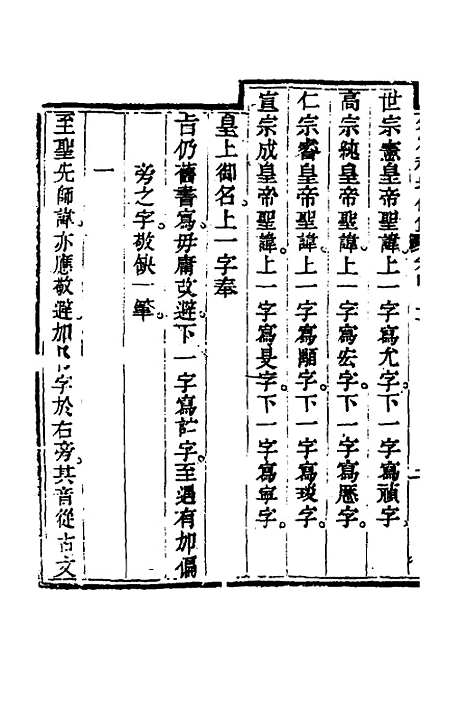 世宗憲皇帝聖諱上一字寫尤字下一字寫禎字
高宗純皇帝聖諱上一字寫宏字下一字寫厯字
仁宗睿皇帝聖諱上一字寫顒字下一字寫琰字
宣宗成皇帝聖諱上一字寫旻字下一字寫寧字
皇上御名上一字奉
旨仍舊書寫毋庸改避下一字寫詝字至遇有加偏
旁之字敬缺一筆
一
至聖先師諱亦應敬避加阝字於右旁其音從古文